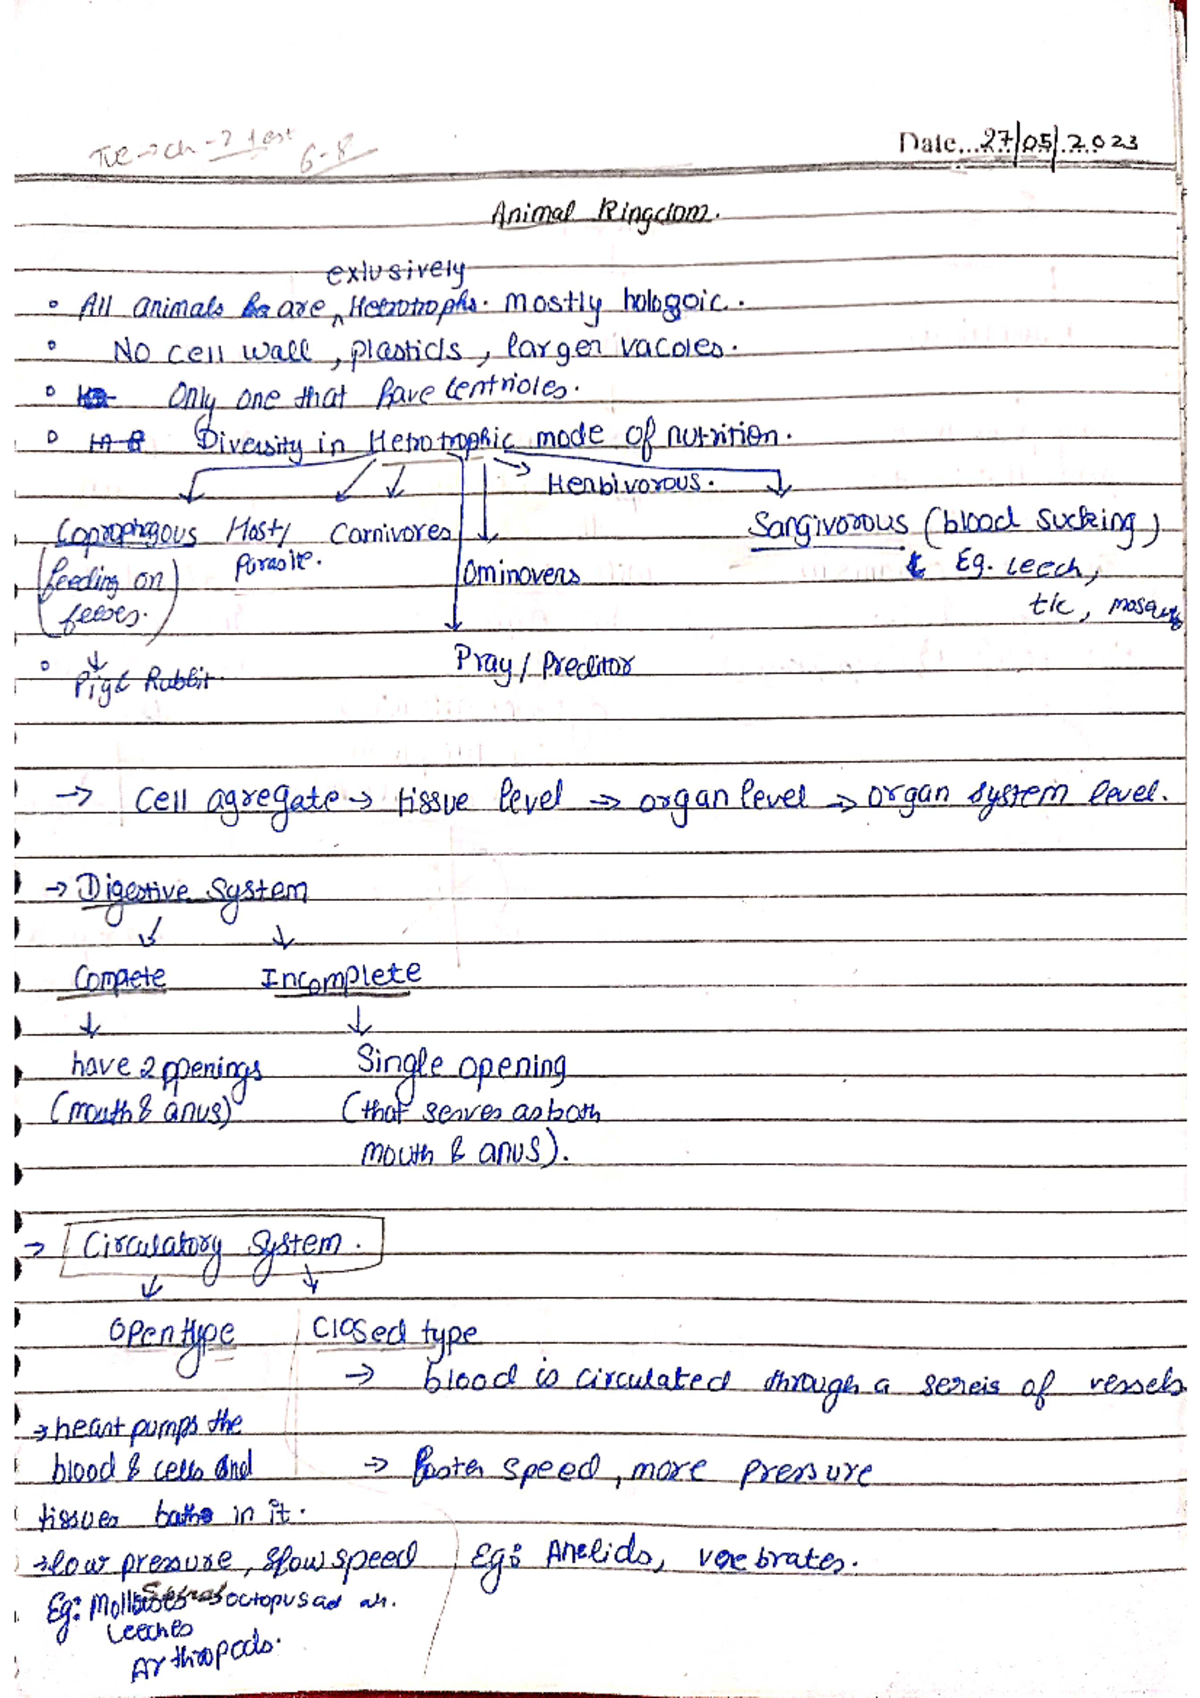 Tue → ch - 2 test
6-8
Date...27/05/2023
Animal Kingdom.
exlusively
◦ All animals are ^ Hetrotrophs. mostly hologoic.
◦ No cell wall, plastids, larger vacoles.
◦ Only one that have Centrioles.
◦ Diversity in Hetrotrophic mode of nutrition.
Herbivorous.
Coprophagous Host/ Carnivores Sangivorous (blood sucking)
Parasite.
(feeding on Ominovers Eg. Leech,
feeses.) tic, mosquto
Pray / Preditor
◦ Pig & Rabbit.
→ Cell agregate → tissue level → organ level → organ system level.
→ Digestive System
Compete Incomplete
have 2 openings Single opening
(mouth & anus) (that serves as both
mouth & anus).
→ Circulatory System.
Open type Closed type
→ blood is circulated through a sereis of vessels
→ heart pumps the
blood & cells and → faster speed, more pressure
tissues bathe in it.
→ low pressure, slow speed Eg: Anelids, verebrates.
Eg: octopus
Leeches
Arthropods.